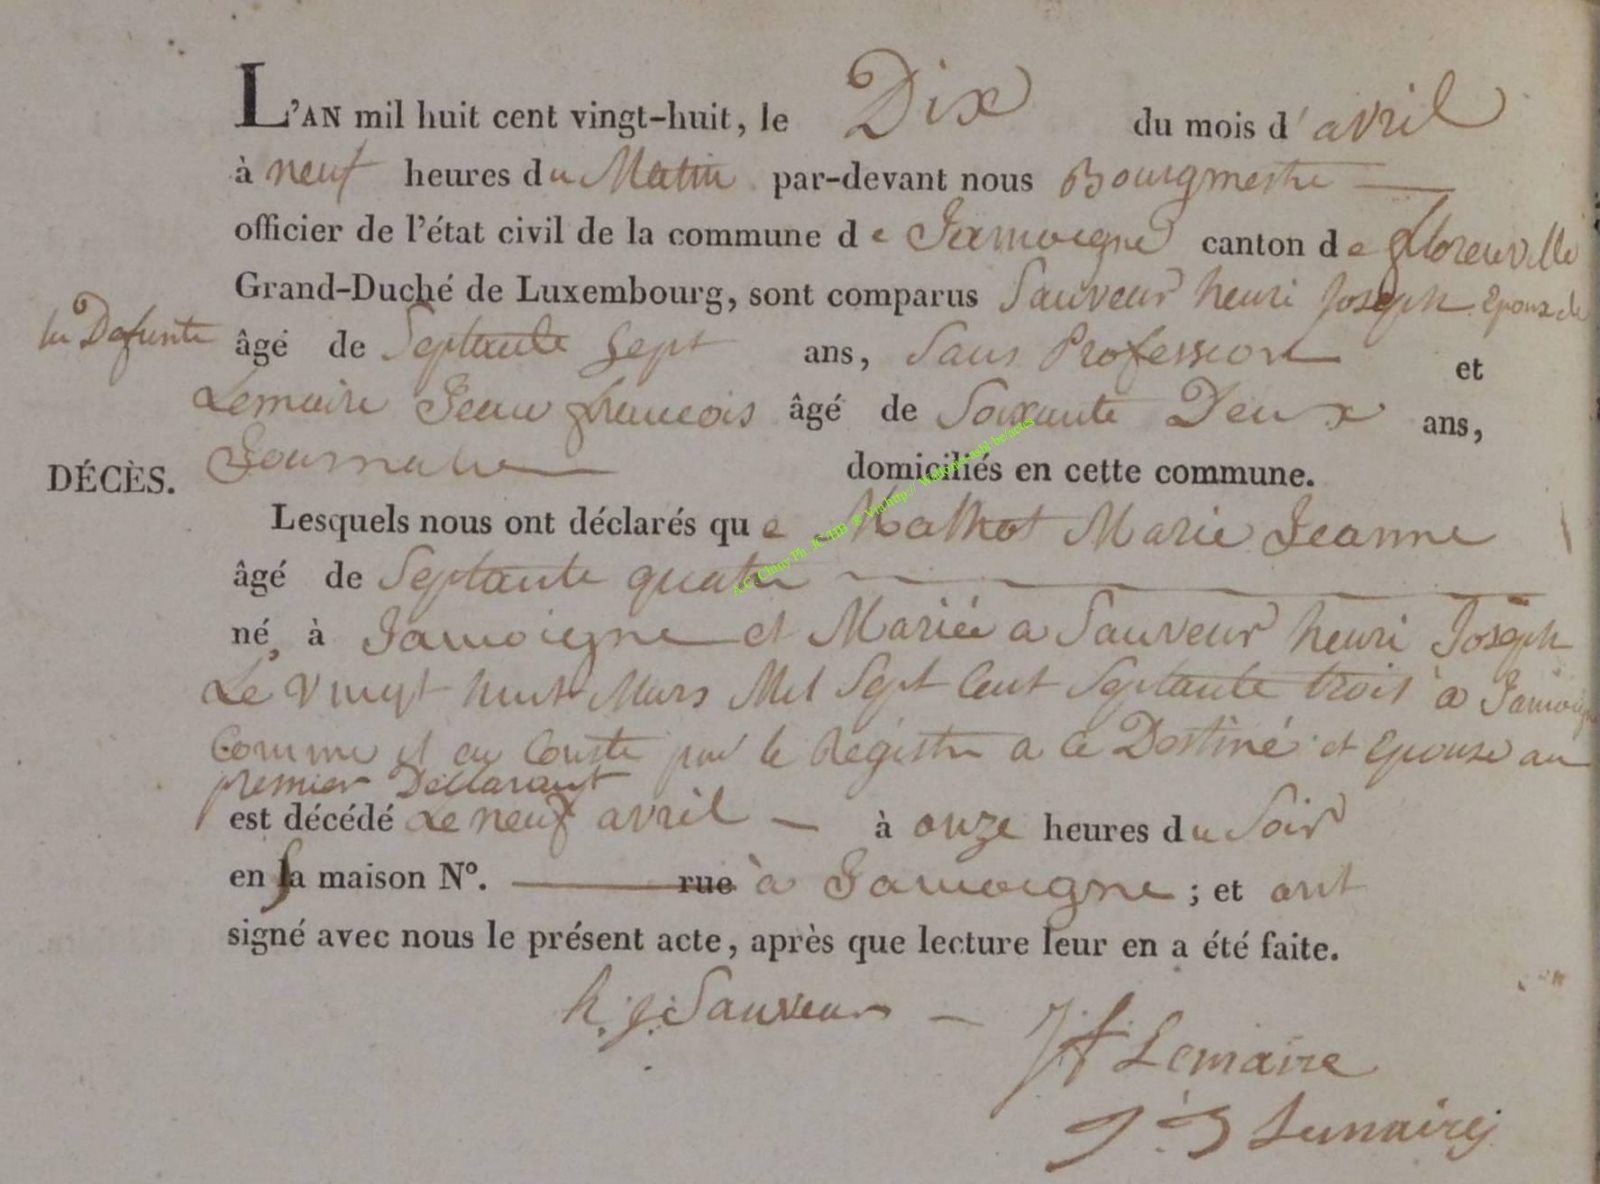 L'AN mil huit cent vingt-huit, le Dix du mois d'avril
à neuf heures du Matin par-devant nous Bourgmestre
officier de l'état civil de la commune de Jamoigne canton de florenville
Grand-Duché de Luxembourg, sont comparus Sauveur henri Joseph Epoux de
la Defunte
âgé de Septante Sept ans, Sans Profession et
Lemaire Jean francois âgé de Soixante Deux ans,
Journalier
DÉCÈS.
domiciliés en cette commune.
Lesquels nous ont déclarés que Mathot Marie Jeanne
âgé de Septante quatre
né, à Jamoigne et Mariée a Sauveur henri Joseph
Le vingt huit Mars Mil Sept Cent Septante trois a Jamoigne
Comme il en Conste par le Régistre a ce Destiné et Epouse au
premier Déclarant
est décédé Le neuf avril à onze heures du Soir
en sa maison N°. rue à Jamoigne ; et ont
signé avec nous le présent acte, après que lecture leur en a été faite.
h. j. Sauveur
J f Lemaire